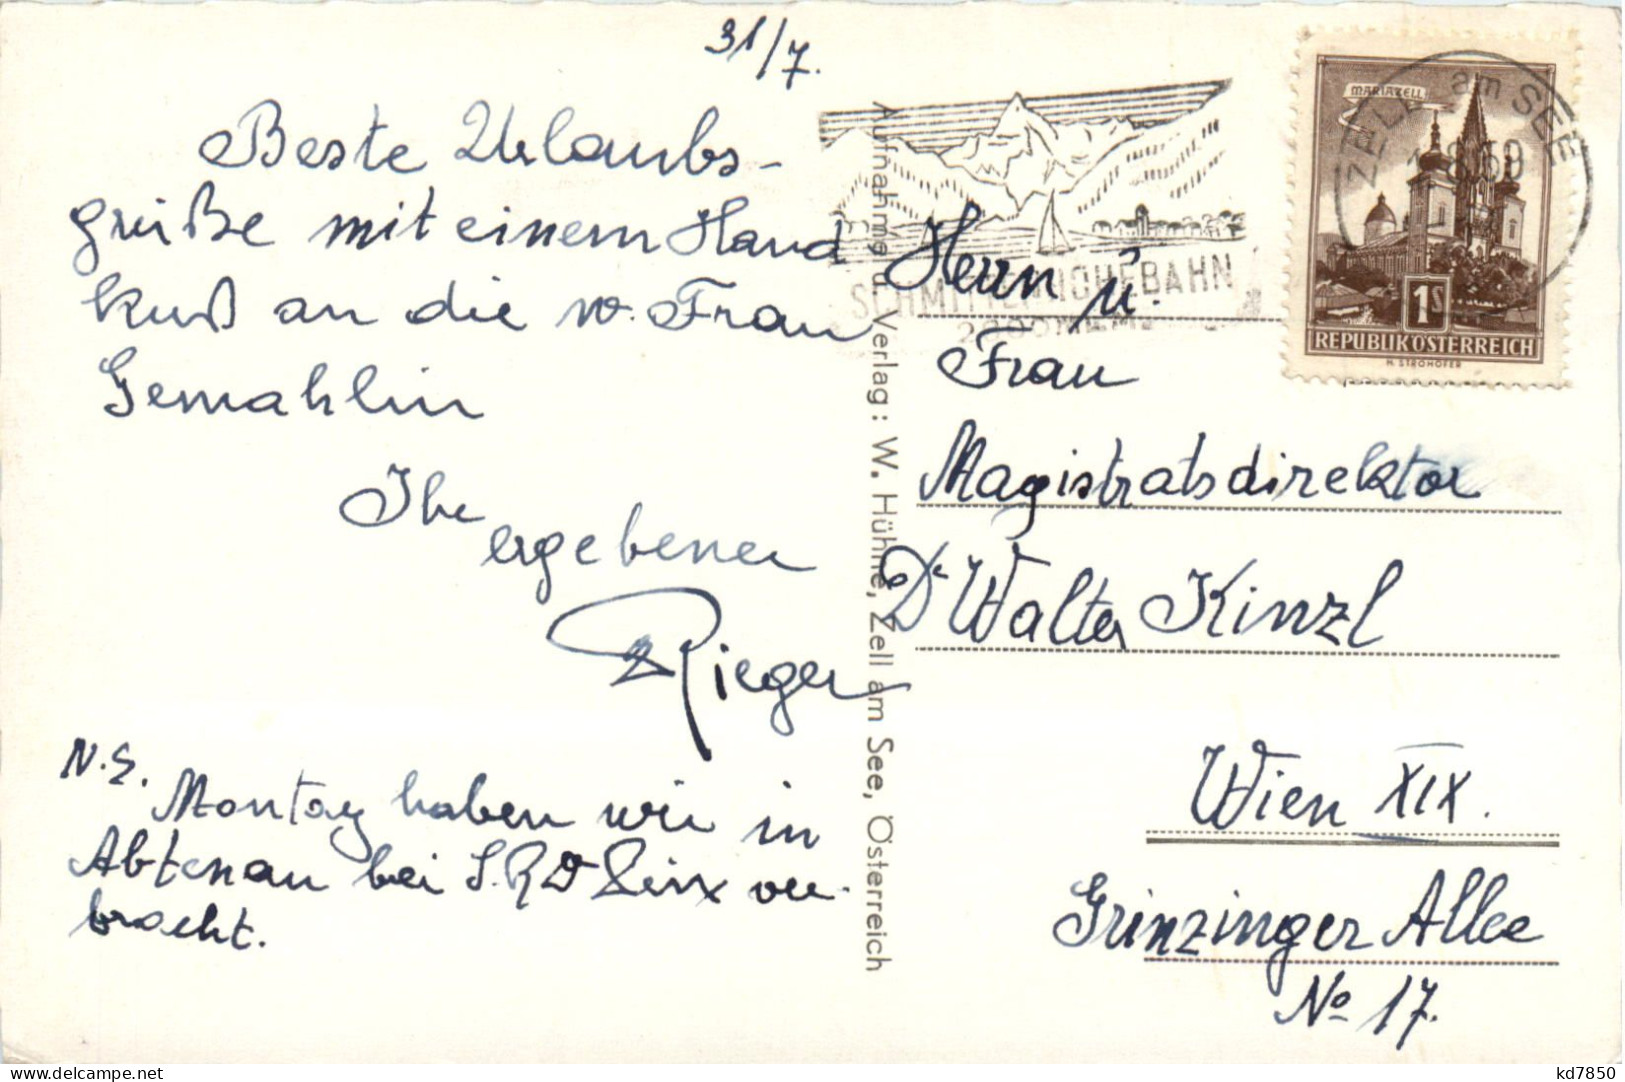 31/7.
Beste Urlaubs-
grüße mit einem Hand
kuß an die w. Frau
Gemahlin
Ihr
ergebener
Rieger
N.S.
Montag haben wir in
Abtenau bei S.R.D Linx ver-
bracht.
Aufnahme u. Verlag: W. Hühne, Zell am See, Österreich
SCHMITTENHÖHEBAHN
ZELL am SEE
MARIAZELL
1S
REPUBLIK ÖSTERREICH
H. STROHOFER
Herrn u.
Frau
Magistratsdirektor
Dr Walter Kinzl
Wien XIX.
Grinzinger Allee
No 17.
kd7850